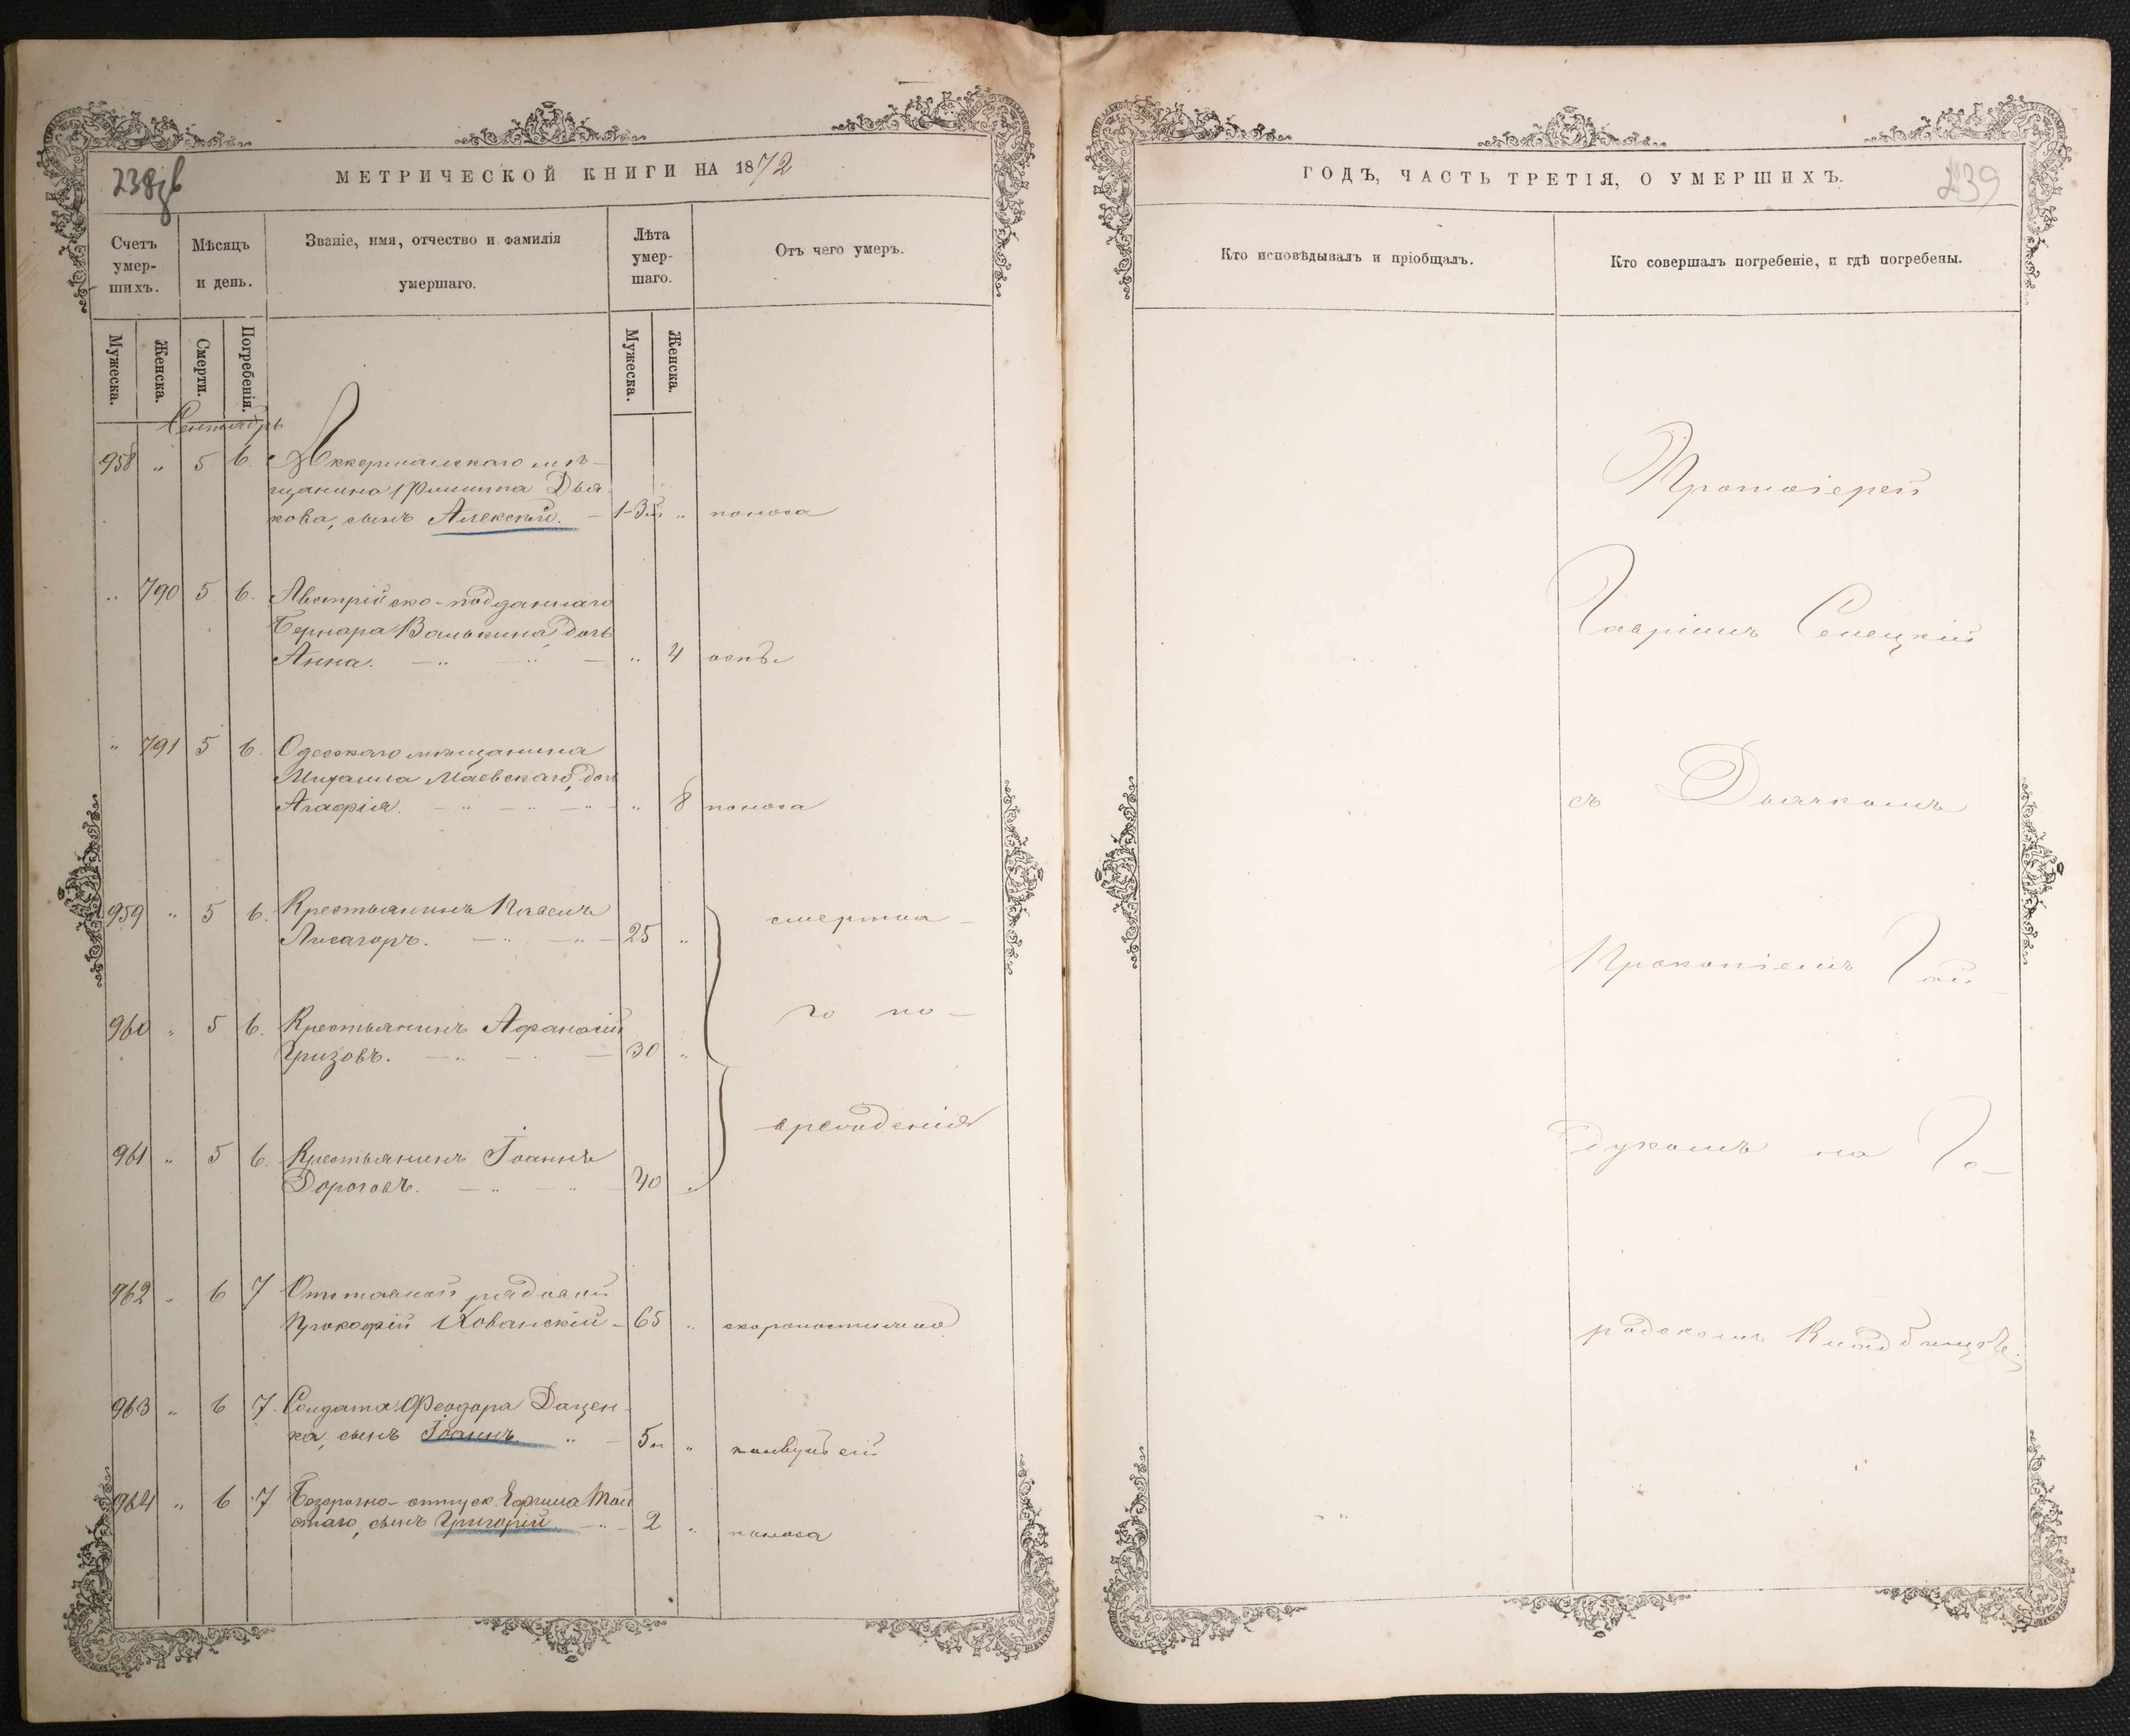 238зв
МЕТРИЧЕСКОЙ КНИГИ НА 1872
Счетъ умер-шихъ.
Мѣсяцъ и день.
Званіе, имя, отчество и фамилія умершаго.
Лѣта умер-шаго.
Отъ чего умеръ.
Мужеска.
Женска.
Смерти.
Погребенія.
Мужеска.
Женска.
Сентябрь
958 " 5 6. Аккерманскаго мѣ-
щанина Филиппа Дья
кова, сынъ Алексѣй. - 1-3 " поноса
" 790 5 6. Австрійско-подданнаго
Бернара Валькина, дочь
Анна. " 4 оспы
" 791 5 6. Одесскаго мѣщанина
Михаила Маевскаго, доч
Агафія. " 8 поноса
959 " 5 6. Крестьянинъ Павелъ
Лисагоръ. 25 "
смертна-
960 " 5 6. Крестьянинъ Афанасій
Гризовъ. 30 "
го по-
961 " 5 6. Крестьянинъ Іоаннъ
Дороговъ. 40 "
врежденія
962 " 6 7 Отставной рядовой
Прокофій Хованскій - 65 " скоропостижно
963 " 6 7. Солдата Феодора Дацен-
ка, сынъ Іоаннъ. 5м " конвульсій
964 " 6 7 Безсрочно-отпуск. Ефима Тол
стаго, сынъ Григорій. 2 " поноса
ГОДЪ, ЧАСТЬ ТРЕТІЯ, О УМЕРШИХЪ.
239
Кто исповѣдывалъ и пріобщалъ.
Кто совершалъ погребеніе, и гдѣ погребены.
Протоіерей
Гавріилъ Селецкій
съ Дьячкомъ
Прокопіемъ Гай
дукомъ на Го-
родскомъ Кладбищѣ.